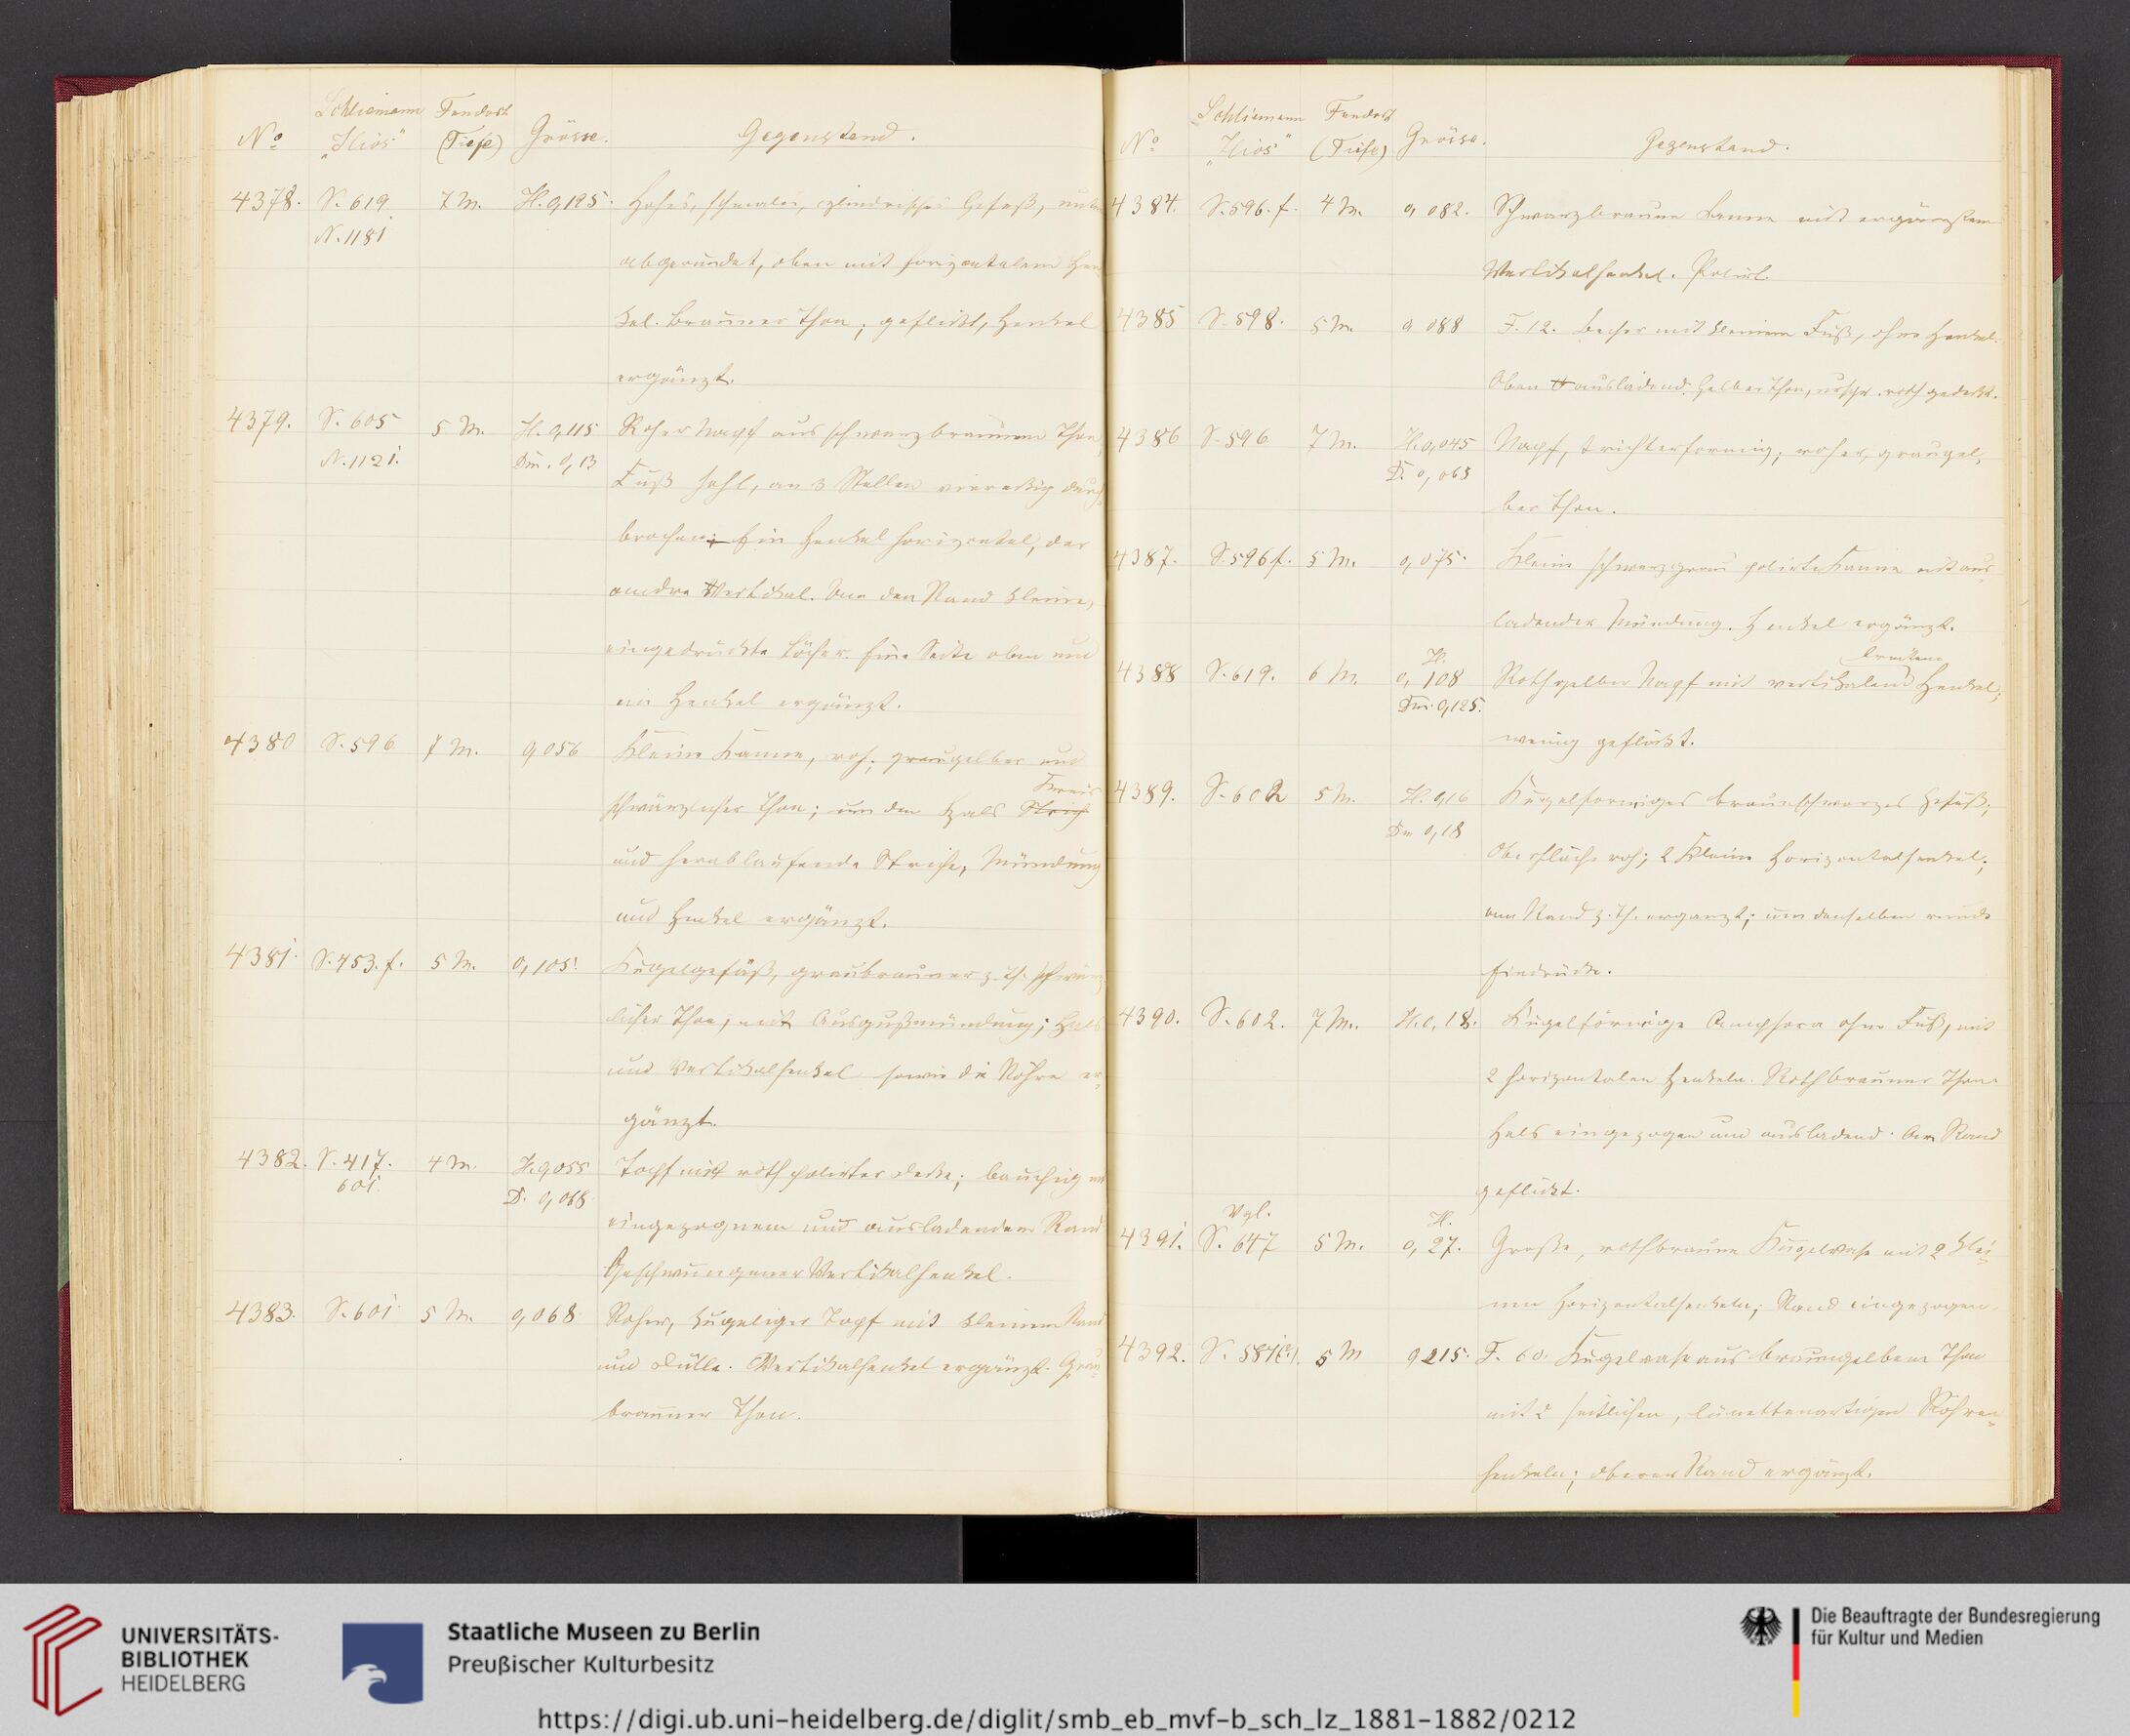 Schliemann Fundort
No "Ilios" (Tiefe) Grösse. Gegenstand.
4378. S. 619 7 M. H. 0,125. Hohes, schmales, cylindrisches Gefäß, unten
N. 1181
abgerundet, oben mit horizontalem Hen-
kel. Brauner Thon; geflickt, Henkel
ergänzt.
4379. S. 605 5 M. H. 0,115 Roher Napf aus schwarzbraunem Thon,
N. 1121. Dm. 0,13
Fuß hohl, an 3 Stellen viereckig durch
brochen; Ein Henkel horizontal, der
andre Vertikal. Um den Rand kleine,
eingedrückte Löcher. Eine Seite oben und
ein Henkel ergänzt.
4380 S. 596 7 M. 0,056 Kleine Kanne, roh; graugelber und
Kreis
schwärzlicher Thon; um den Hals Strich
und herablaufende Striche, Mündung
und Henkel ergänzt.
4381. S. 453. f. 5 M. 0,105. Kugelgefäß, graubrauner z. Th. schwärz
licher Thon, mit Ausgußmündung; Hals
und Vertikalhenkel sowie die Röhre er-
gänzt.
4382. S. 417. 4 M. H. 0,055 Topf mit roth polirter Decke; bauchig mit
601. D. 0,068.
eingezognem und ausladendem Rand
Geschwungener Vertikalhenkel.
4383. S. 601. 5 M. 0,068. Roher, kugeliger Topf mit kleinem Rand
und Dülle. Vertikalhenkel ergänzt. Grau-
brauner Thon.
Schliemann Fundort
No "Ilios" (Tiefe) Grösse. Gegenstand.
4384. S. 596. f. 4 M. 0,082. Schwarzbraune Kanne mit ergänztem
Vertikalhenkel. Polirt.
4385 S. 598. 5 M. 0,088 F. 12. Becher mit kleinem Fuß, ohne Henkel.
Oben ausladend. Gelber Thon, urspr. roth gedeckt.
4386 S. 596 7 M. H. 0,045 Napf, trichterförmig; roher, graugel-
D. 0,065
ber Thon.
4387. S. 596 f. 5 M. 0,075. Kleine schwarzgrau polirte Kanne mit aus-
ladender Mündung. Henkel ergänzt.
H. breitem
4388 S. 619. 6 M. 0,108 Rothgelber Napf mit vertikalem Henkel,
Dm. 0,125.
wenig geflickt.
4389. S. 602 5 M. H. 0,16 Kugelförmiges braunschwarzes Gefäß,
Dm 0,18
Oberfläche roh; 2 kleine Horizontalhenkel;
am Rand z. Th. ergänzt; um denselben runde
Eindrücke.
4390. S. 602. 7 M. H. 0,18. Kugelförmige Amphora ohne Fuß, mit
2 horizontalen Henkeln. Rothbrauner Thon.
Hals eingezogen und ausladend. Am Rand
geflickt.
Vgl. H.
4391. S. 647 5 M. 0,27. Große, rothbraune Kugelvase mit 2 klei-
nen Horizontalhenkeln; Rand eingezogen.
4392. S. 587(?). 5 M 0,215. F. 60. Kugelvase aus braungelbem Thon
mit 2 seitlichen, lünettenartigen Röhren-
henkeln; oberer Rand ergänzt.
UNIVERSITÄTS-
BIBLIOTHEK
HEIDELBERG
Staatliche Museen zu Berlin
Preußischer Kulturbesitz
Die Beauftragte der Bundesregierung
für Kultur und Medien
https://digi.ub.uni-heidelberg.de/diglit/smb_eb_mvf-b_sch_lz_1881-1882/0212